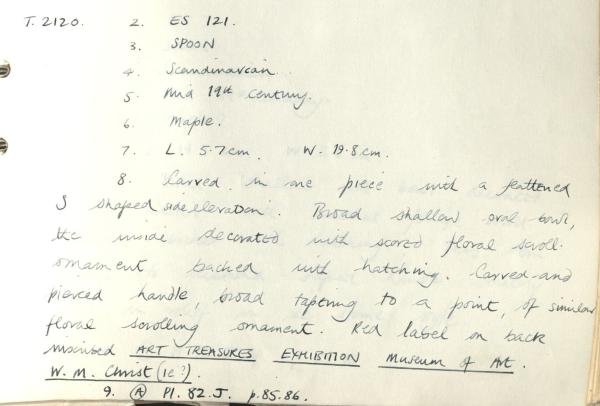 T. 2120. 2. ES 121.
3. SPOON
4. Scandinavian.
5. Mid 19th century.
6. Maple.
7. L. 5.7cm. W. 19.8cm.
8. Carved in one piece with a flattened
S shaped side elevation. Broad shallow oval bowl,
the inside decorated with scored floral scroll
ornament backed with hatching. Carved and
pierced handle, broad tapering to a point, of similar
floral scrolling ornament. Red label on back
inscribed ART TREASURES EXHIBITION Museum of Art.
W. M. Christ (ie?).
9. (A) Pl. 82.J. p.85.86.